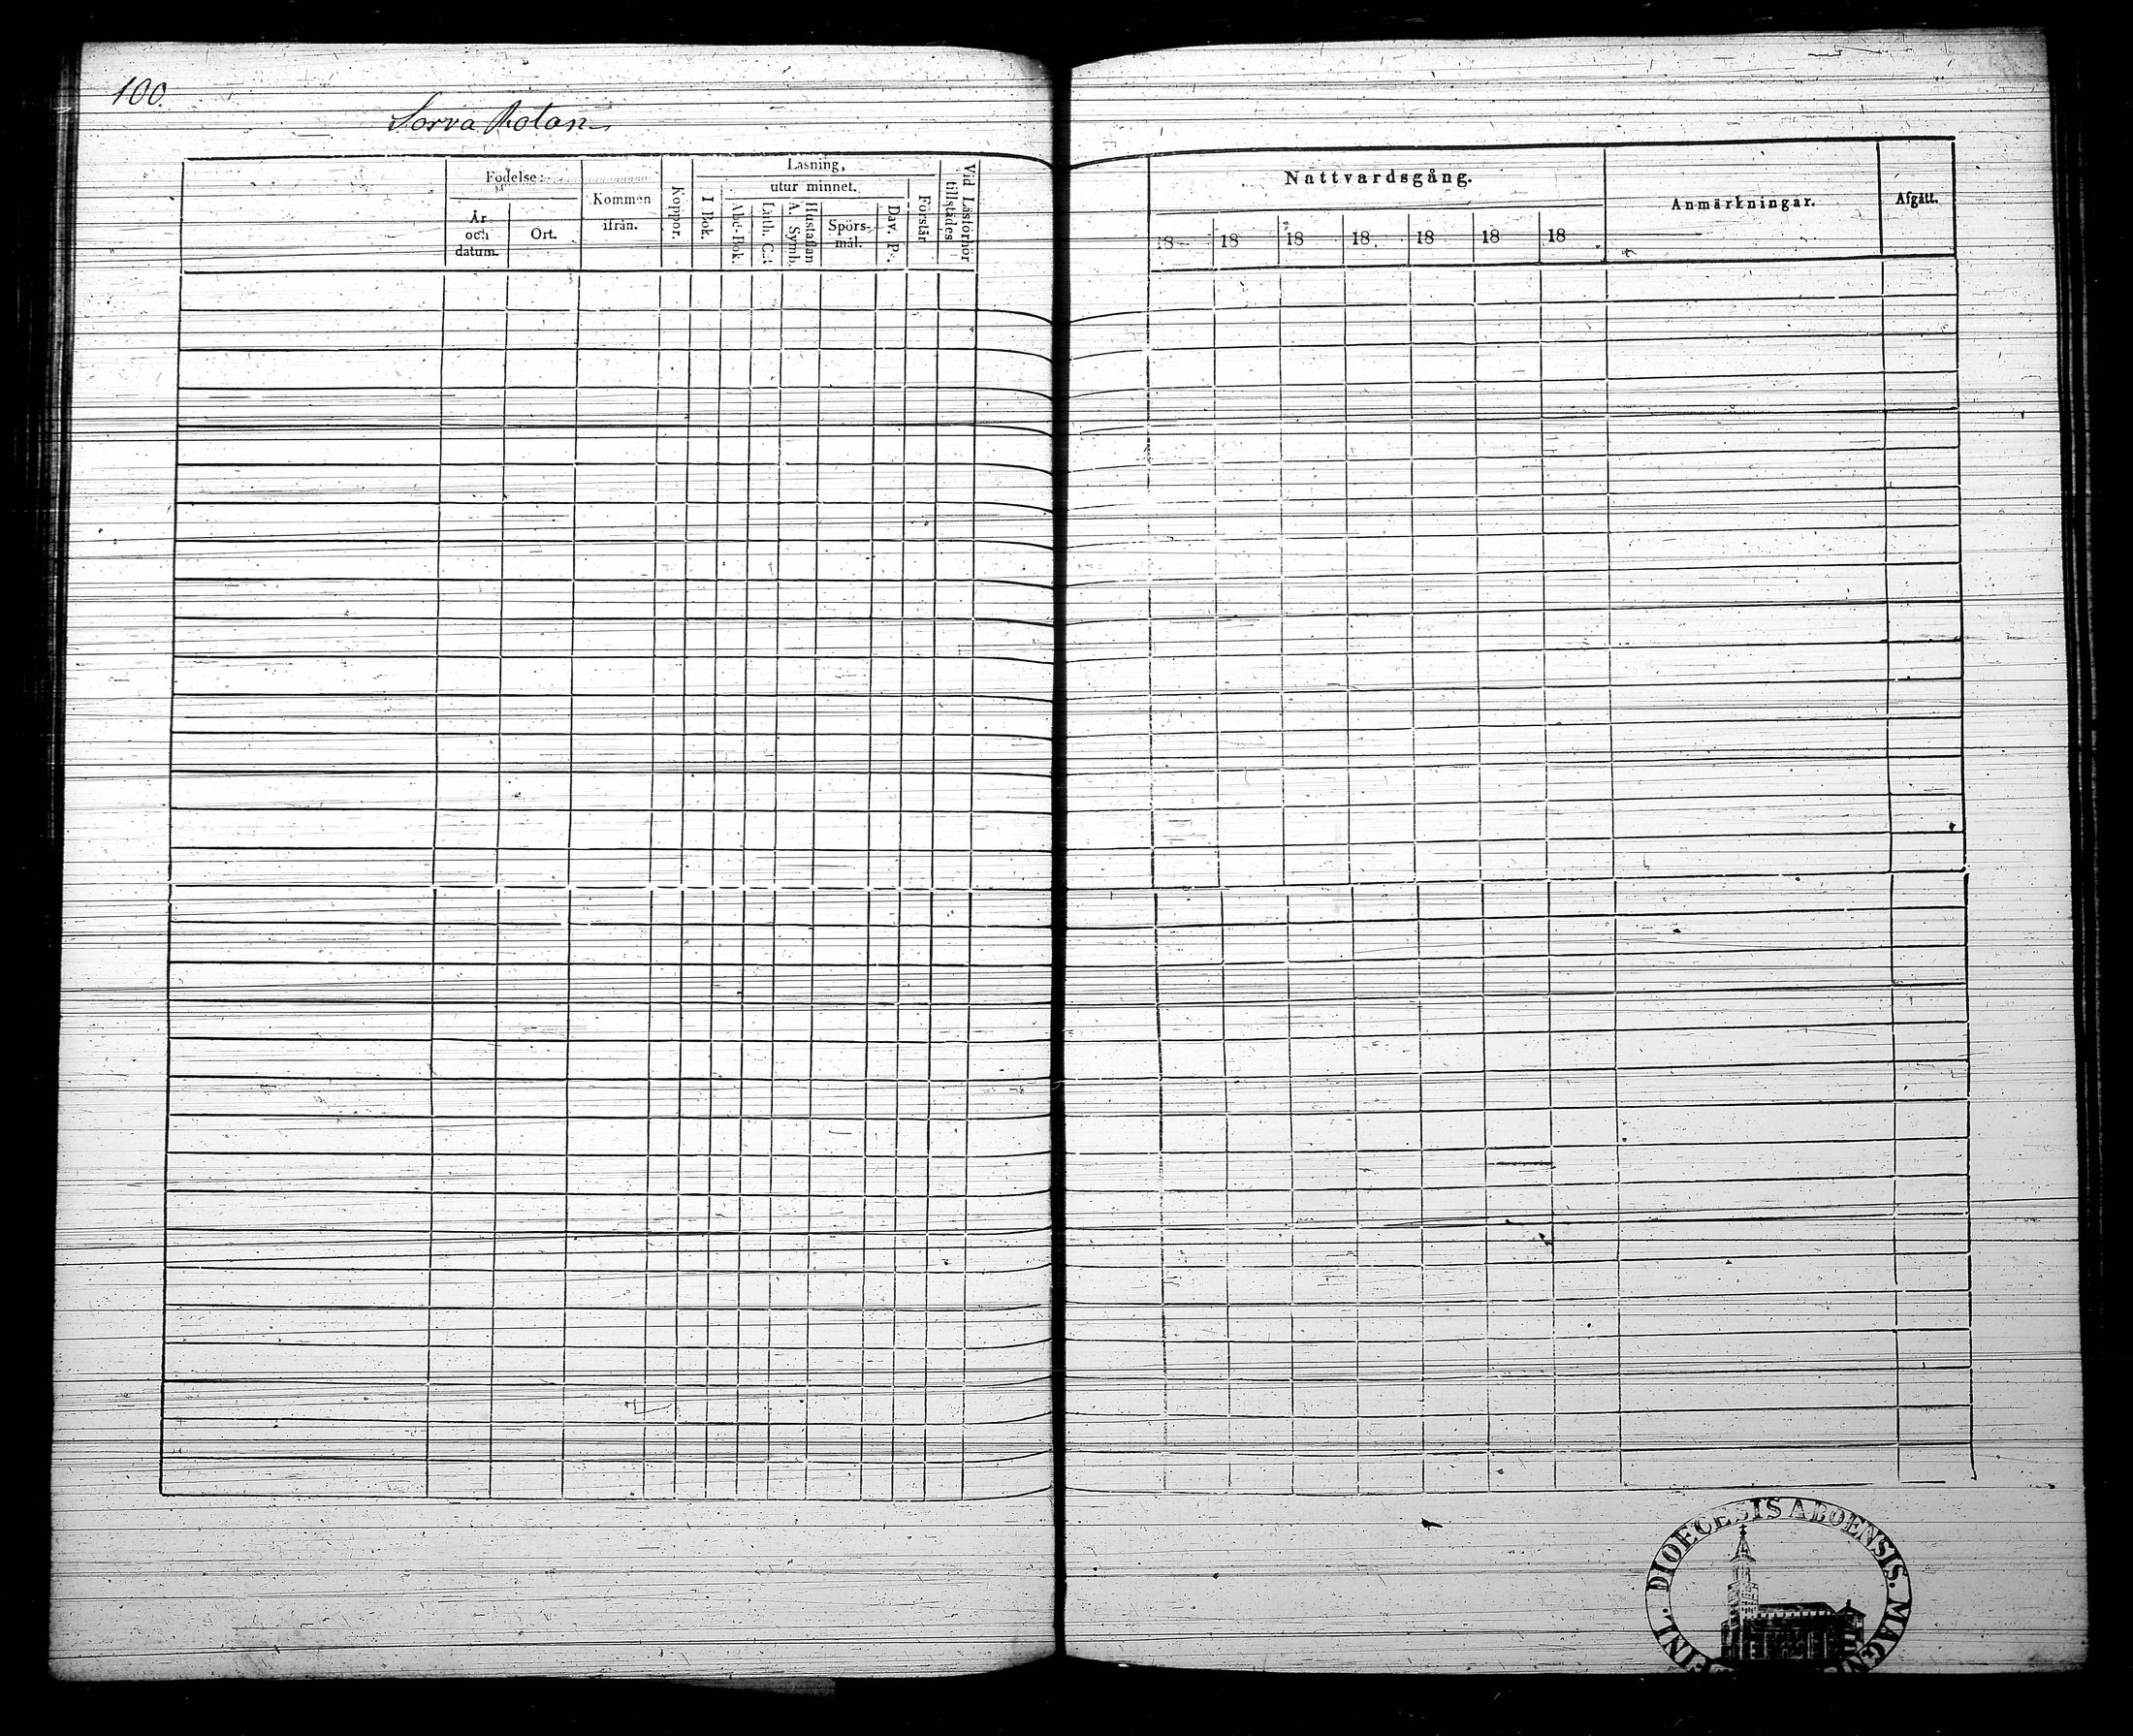 100.
Sorva Rotan
Födelse:
År och datum.
Ort.
Kommen ifrån.
Koppor.
Läsning,
I Bok.
utur minnet.
Abc-Bok.
Luth. Cat.
Hustaflan A. Symb.
Spörs-mål.
Dav. Ps.
Förstår
Vid Läsförhör tillstädes
Nattvardsgång.
18 18 18 18 18 18 18
Anmärkningar.
Afgått.
FINL. DIOECESIS ABOENSIS. MAGN